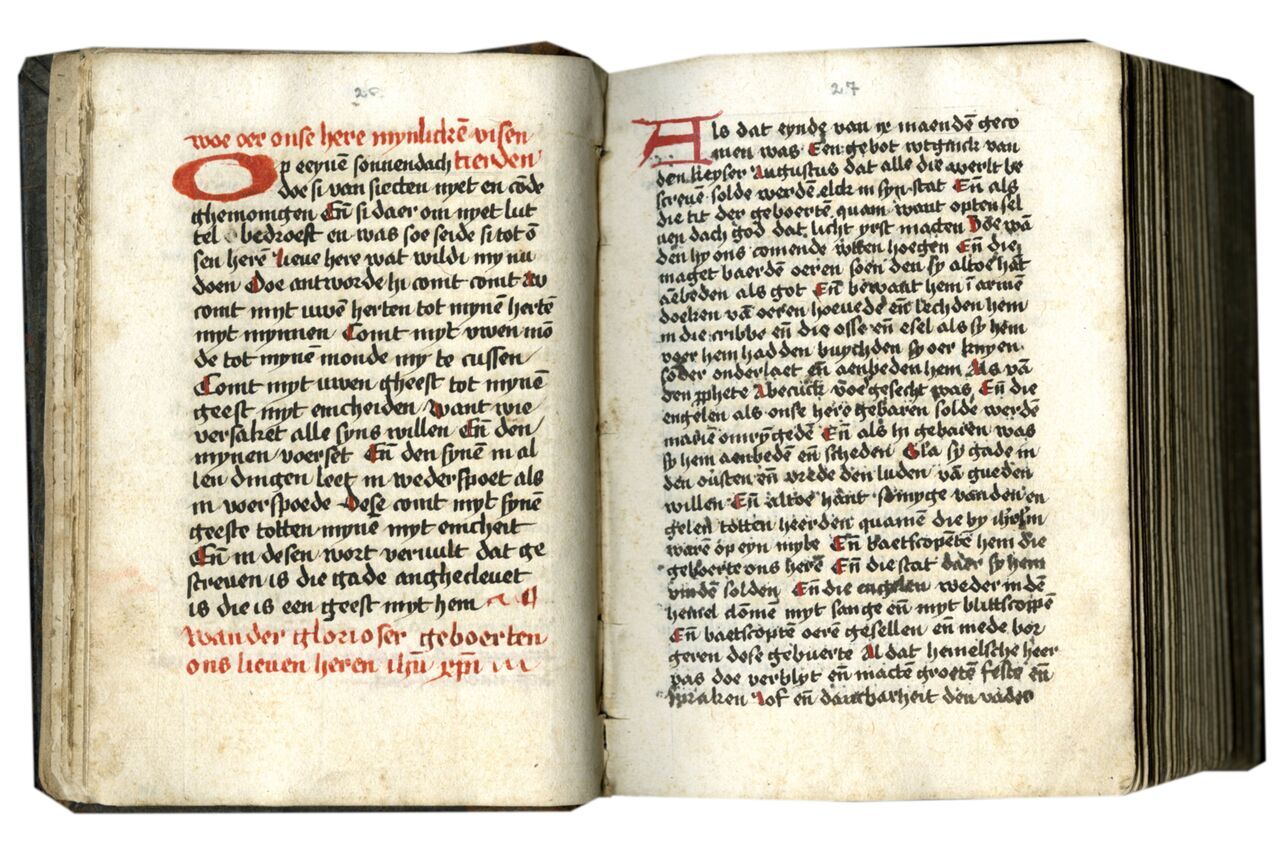 26
woe oer onse here mynlickē visen
Op eeynē sonnendach tierden
doe si van siecten nyet en cōde
ghemonigen Eñ si daer om nyet lut
tel bedroeft en was soe seide si tot ō
sen herē lieue here wat wildi my nu
doen Doe antworde hi comt comt Nv
comt myt uwē herten tot mynē hertē
myt mynnen Comt myt vwen mō
de tot mynē monde my te cussen
Comt myt uwen gheest tot mynē
geest myt enicheiden want wie
versaket alle syns willen Eñ den
mynen voerset Eñ den synē in al
len dingen leet in wederspoet als
in voerspoede Dese comt myt synē
geeste totten mynē myt enicheit
Eñ in desen wort vervult dat ge
screuen is die gade anghecleuet
is die is een geest myt hem
Van der glorioser geboerten
ons lieuen heren ihū xpī
27
Als dat eynde van ix maendē geco
men was Een gebot wtginck van
den keyser Augustus dat alle die werlt be
screuē solde werdē elck in syn stat Eñ als
die tit der geboertē quam want opten sel
uen dach god dat licht yrst macten Doe wā
den hy ons comende wtten hoegen Eñ die
maget baerdē oeren soen den sy altoe hāt
aēbeden als got Eñ bewant hem ī armē
doeken vā oeren hoeuede eñ lechden hem
in die cribbe eñ die osse eñ esel als sy hem
voer hem hadden buychden sy oer knyen
soder onderlaet eñ aenbeden hem Als vā
den pphete Abecuck voe gesecht was Eñ die
engelen als onse here gebaren solde werdē
mariē omryngedē Eñ als hi gebarē was
sy hem aenbedē eñ scheden Gla sy gade in
den ousten eñ vrede den luden vā gueden
willen Eñ altoe hāt somyge van den en
gelen totten heerden quamē die by ihrlm
warē op eyn myle Eñ baetscoptē hem die
geboerte ons herē Eñ die stat daer sy hem
vinden solden Eñ die engelen weder in dē
hemel clōmē myt sange eñ myt blittscopē
Eñ baetscoptē oerē gesellen eñ mede bor
geren dese gebuerte Al dat hemelsche heer
pas doe verblyt eñ macte groetē feste eñ
spraken lof eñ danckbarheit den vader